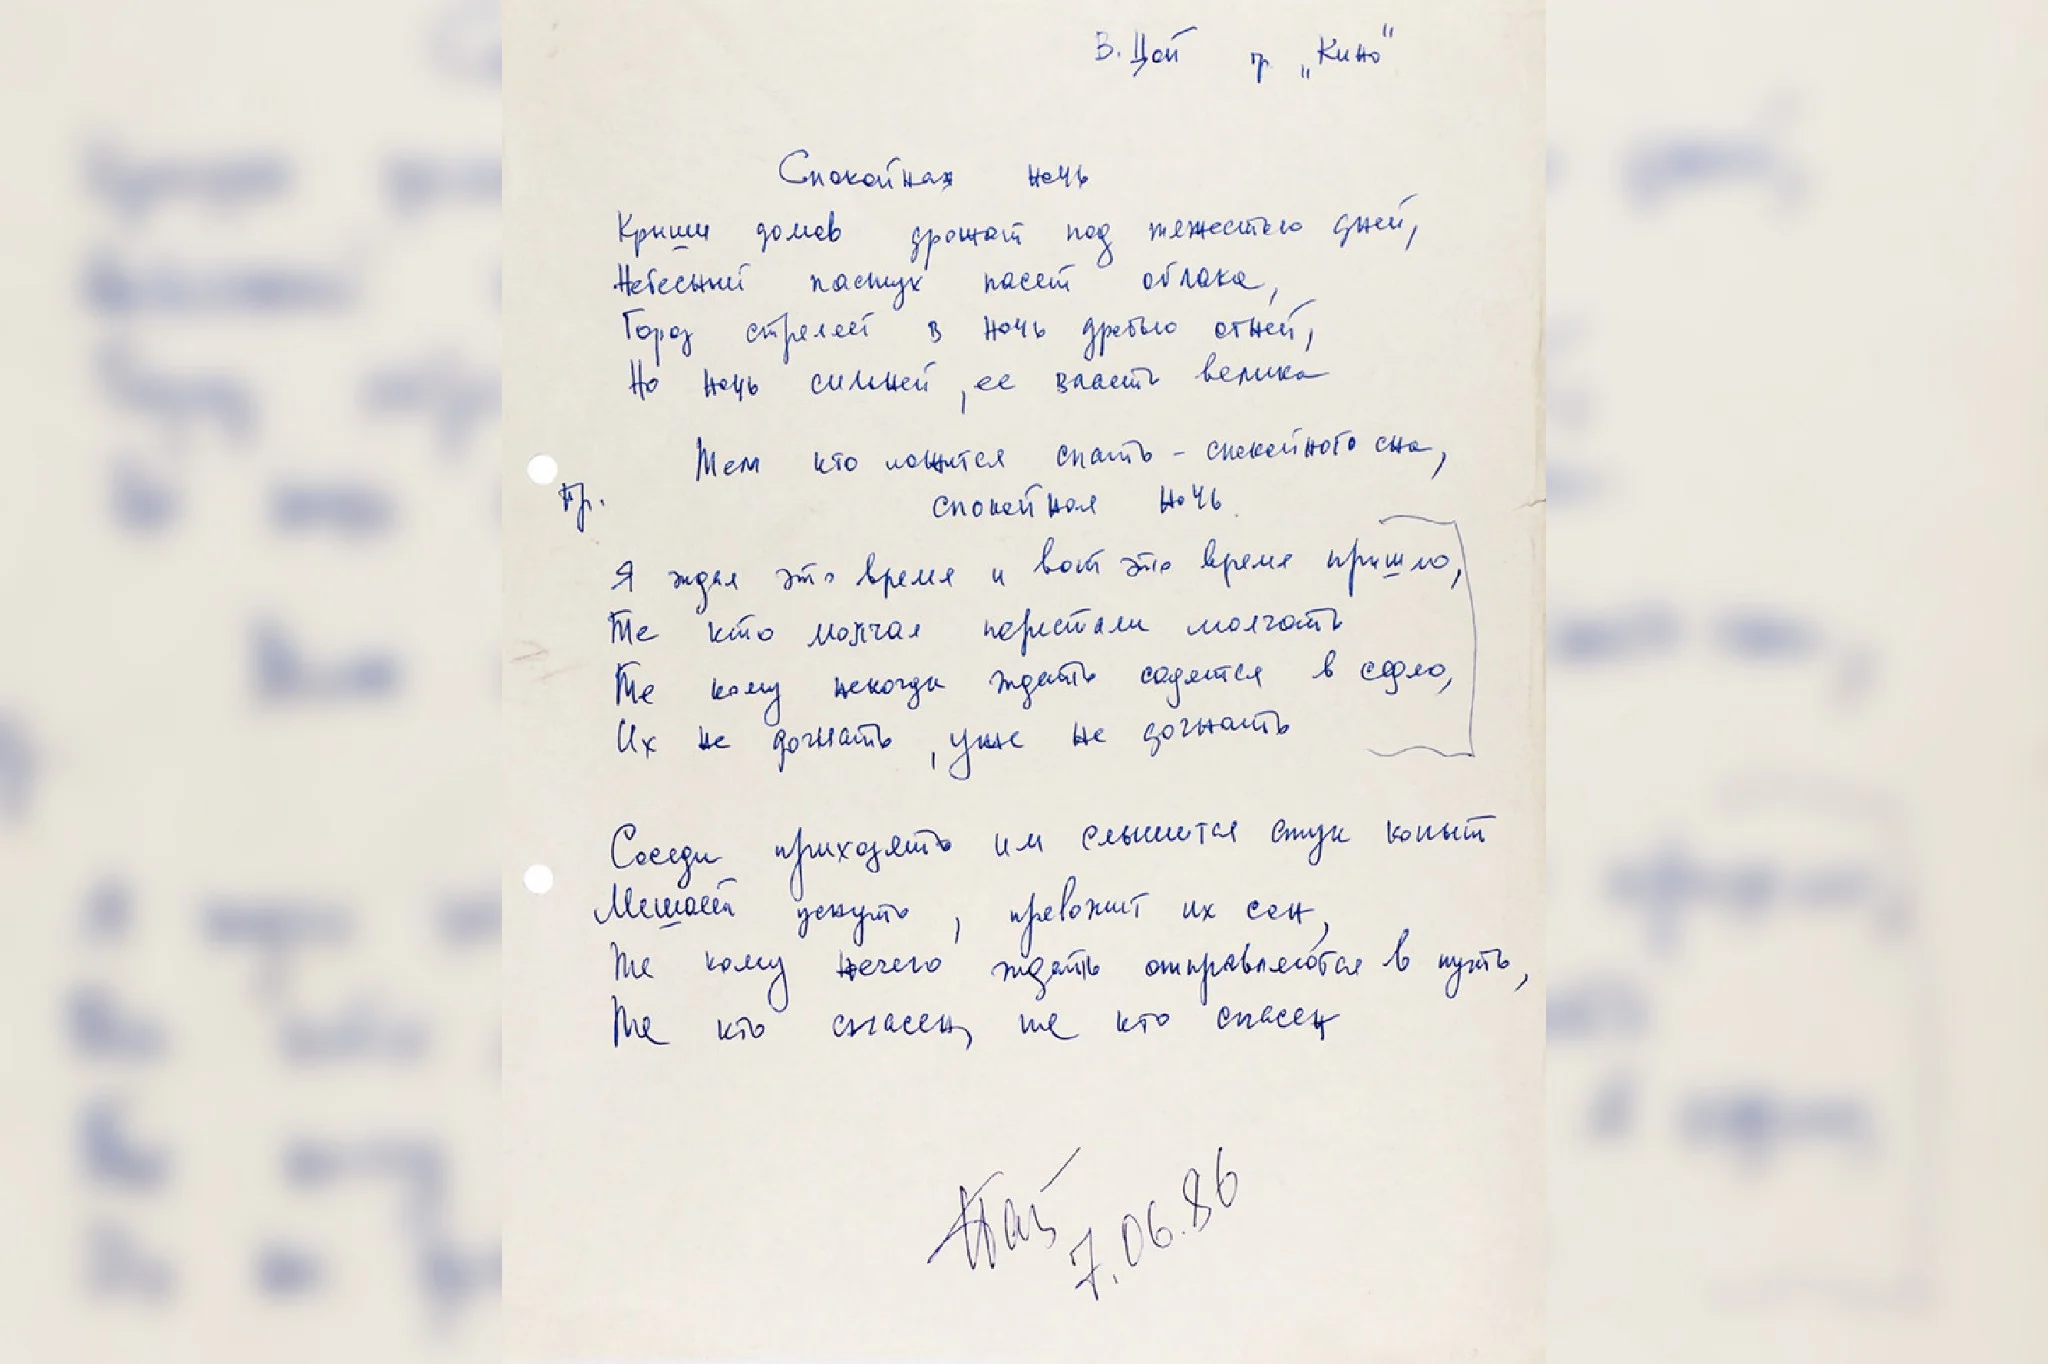 В. Цой гр. „Кино"
Спокойная ночь
Крыши домов дрожат под тяжестью дней,
Небесный пастух пасет облака,
Город стреляет в ночь дробью огней,
Но ночь сильней, ее власть велика
Тем кто ложится спать - спокойного сна,
Пр.
спокойная ночь.
Я ждал это время и вот это время пришло,
Те кто молчал перестали молчать
Те кому некогда ждать садятся в седло,
Их не догнать, уже не догнать
Соседи приходять им слышится стук копыт
Мешает уснуть, тревожит их сон,
Те кому нечего ждать отправляются в путь,
Те кто спасен, те кто спасен
7.06.86